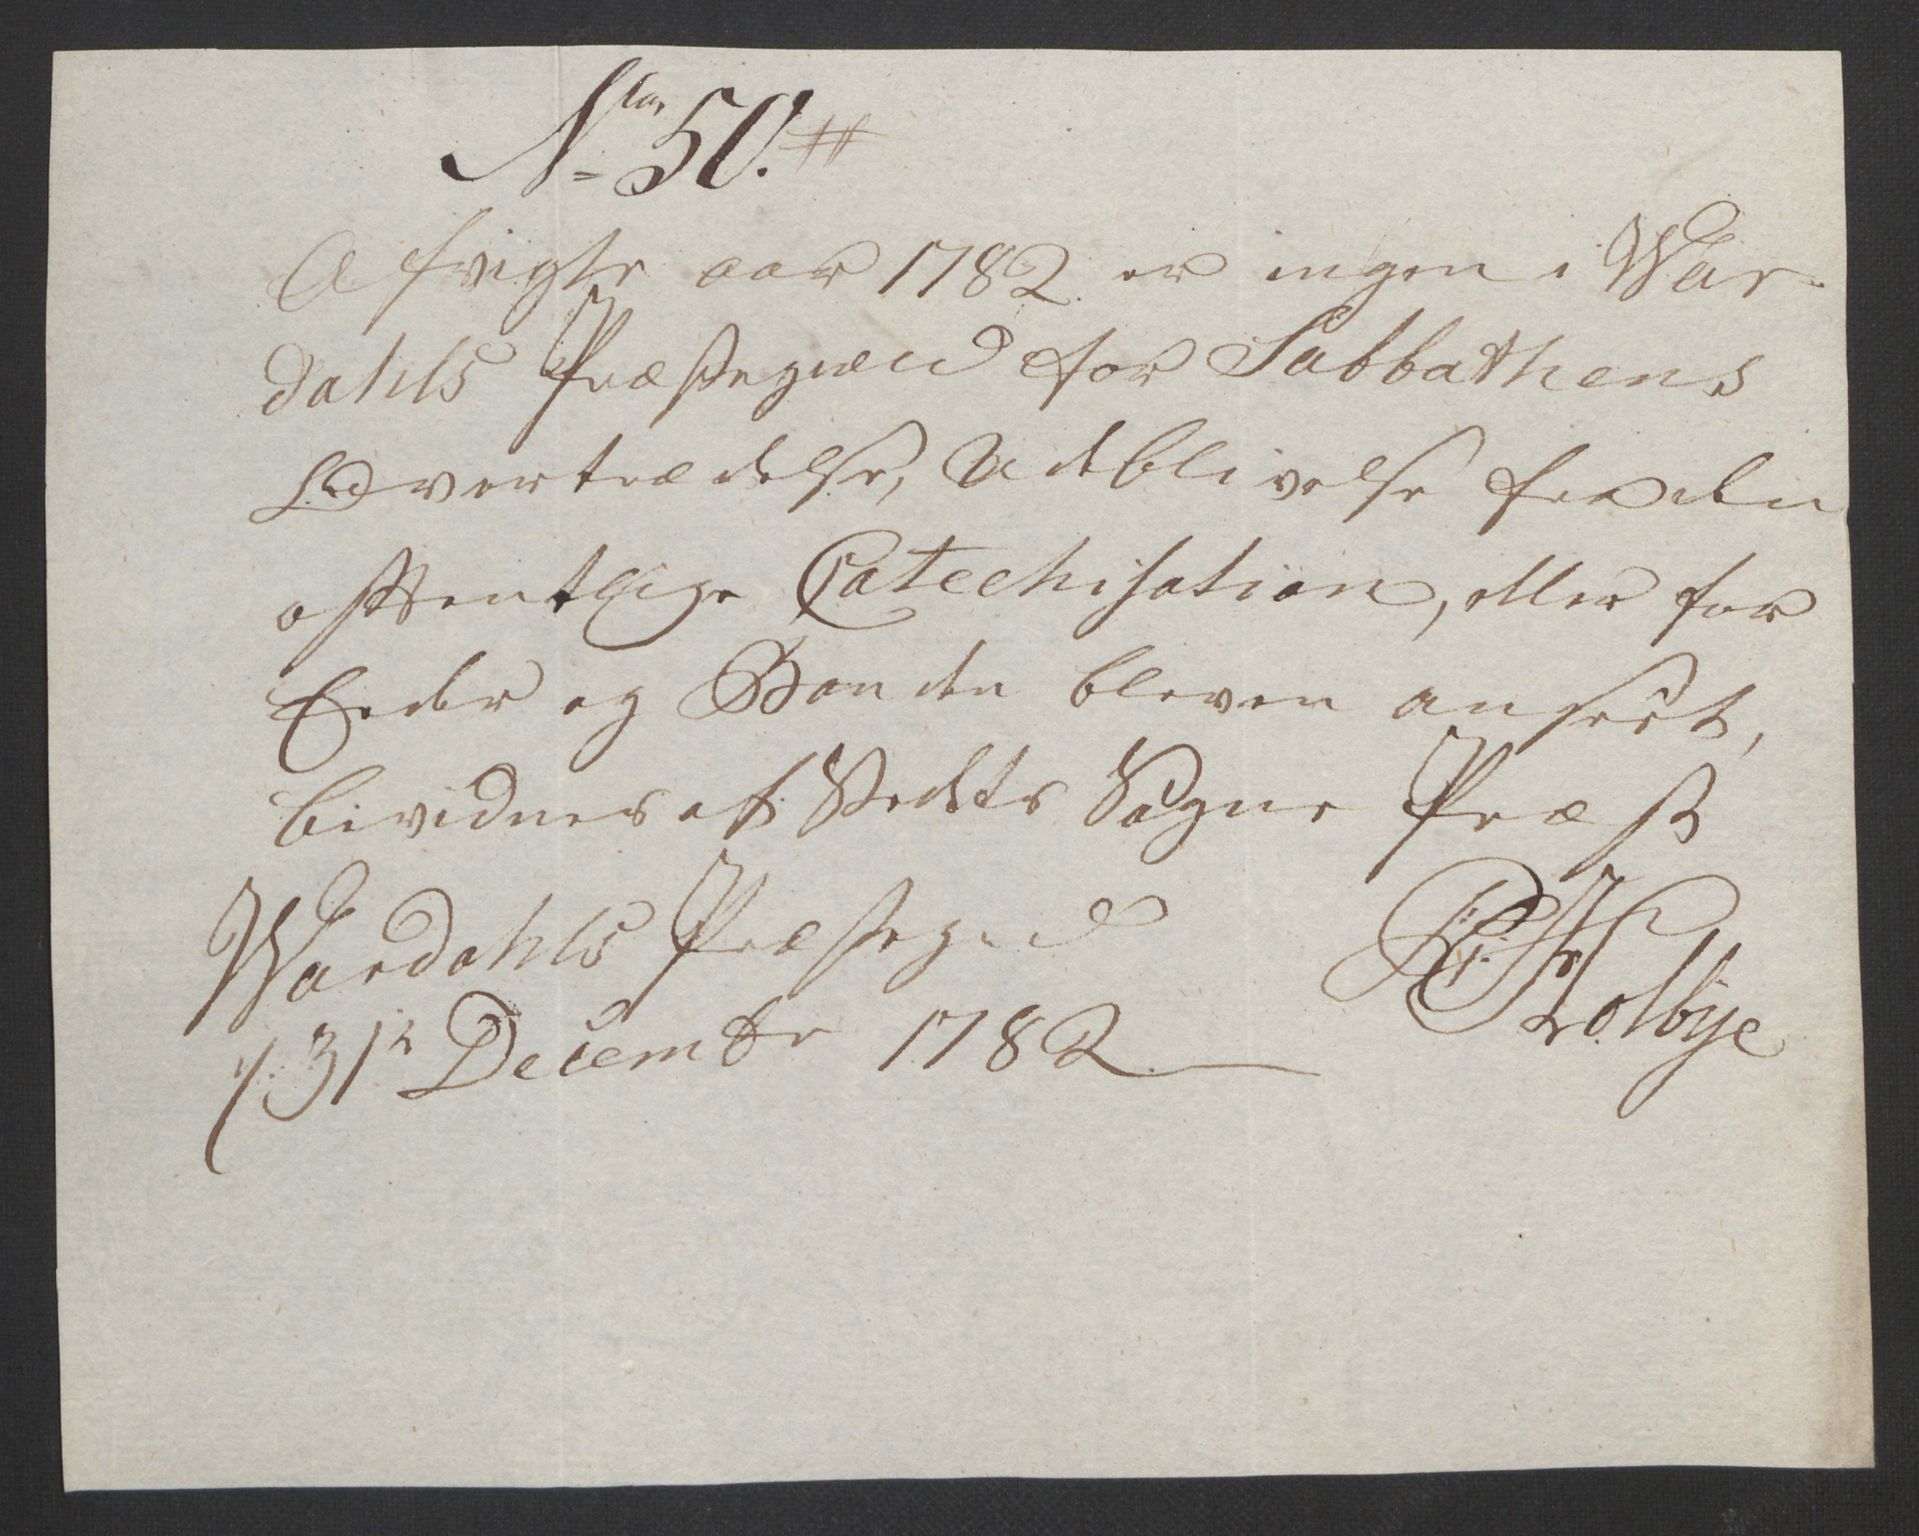 Nro 50.
Afvigte aar 1782 er ingen i Wær-
dahls Præstegield for Sabbathens
Overtrædelse, Udeblivelse fra den
offentlige Catechisation, eller for
Eeder og Banden bleven anseet,
bevidner af Stedets Sogne Præst
Wærdahls Præstegield
d: 31te Decembr 1782
Kolbye